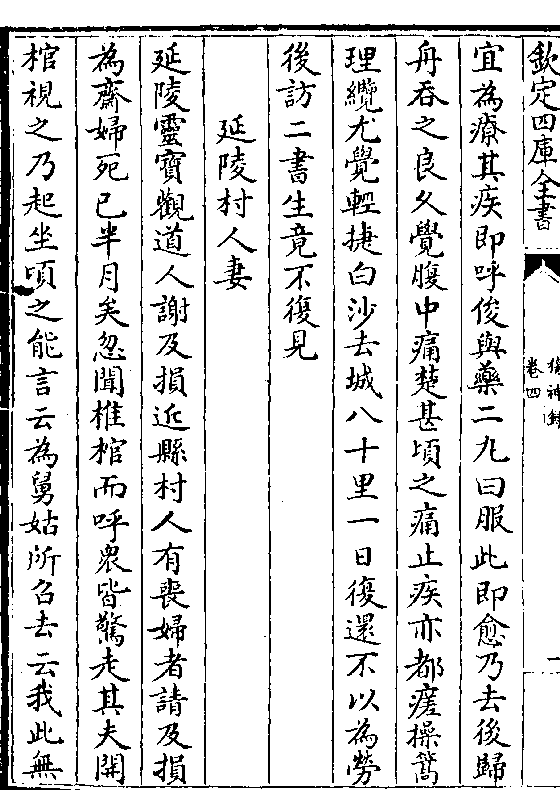 欽定四庫全書
稽神錄
卷四
宜為療其疾即呼俊與藥二丸曰服此即愈乃去後歸
舟吞之良久覺腹中痛楚甚頃之痛止疾亦都瘥操篙
理纜尤覺輕捷白沙去城八十里一日復還不以為勞
後訪二書生竟不復見
延陵村人妻
延陵靈寶觀道人謝及損近縣村人有喪婦者請及損
為齋婦死已半月矣忽聞椎棺而呼衆皆驚走其夫開
棺視之乃起坐頃之能言云為舅姑所召去云我此無